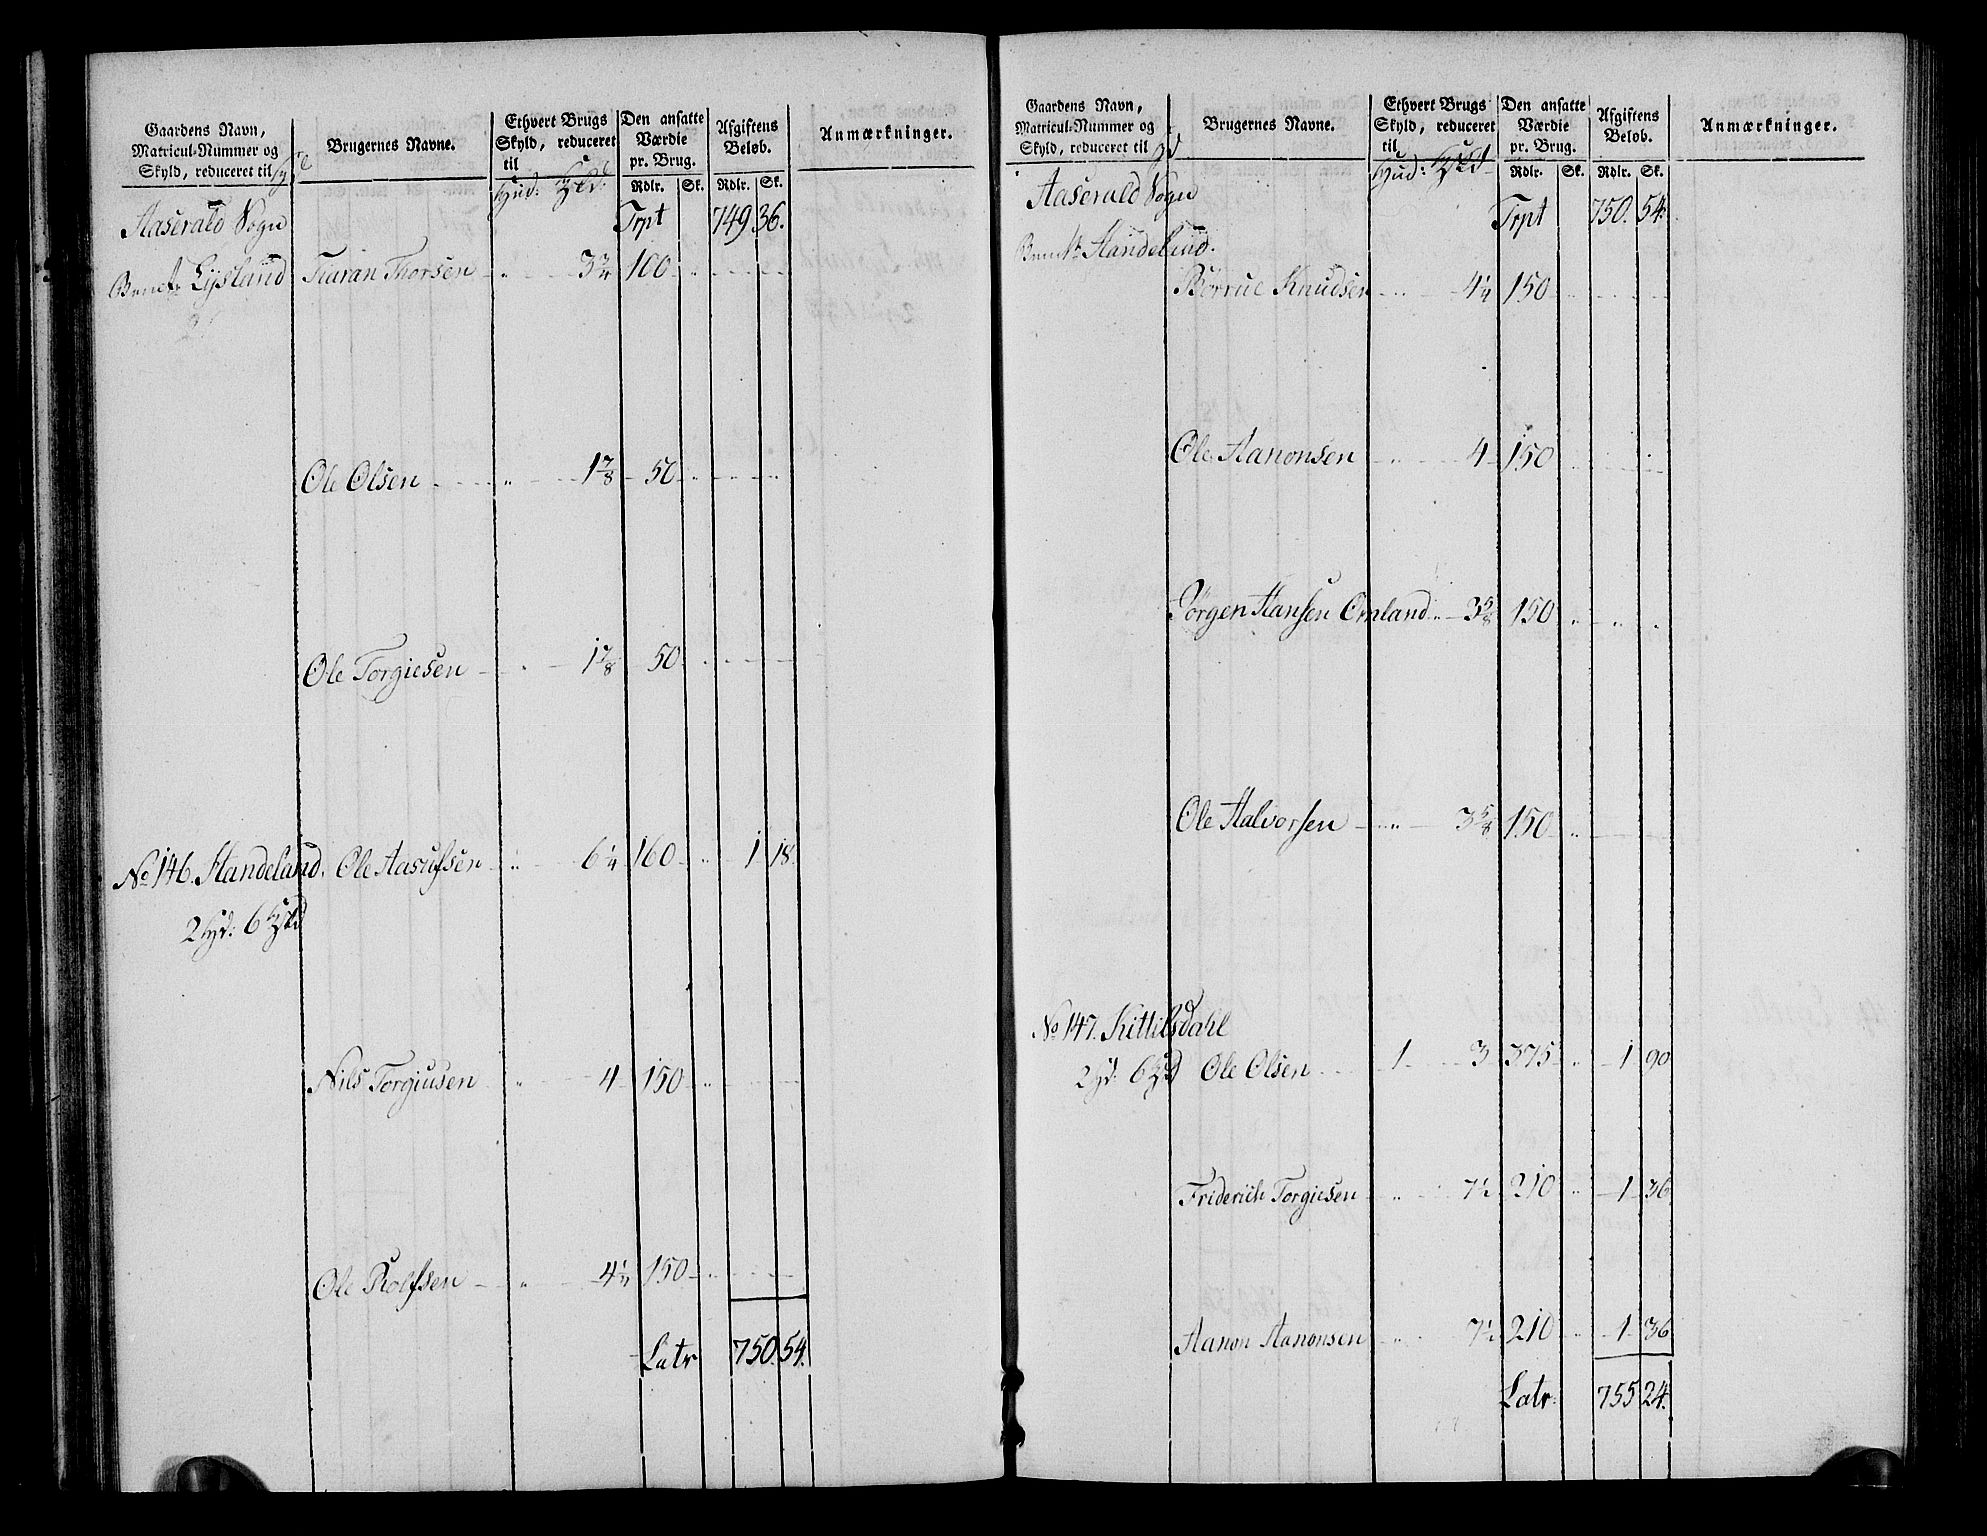 Gaardens Navn,
Matricul-Nummer og
Skyld, reduceret til
Brugernes Navne.
Ethvert Brugs
Skyld, reduceret
til
Hud:
Den ansatte
Værdie
pr. Brug.
Rdlr. Sk.
Afgiftens
Beløb.
Rdlr. Sk.
Anmærkninger.
Aaserald Sogn Trpt 749 36.
Lysland Taran Thorsen „ 3¾ 100
Ole Olsen „ 1⅞ 50 „
Ole Torgiesen „ 1⅞ 50
No 146. Handeland. Ole Aasulfsen „ 6¼ 160 „ 1 18.
Nils Torgiusen „ 4 150 „
Ole Rolfsen „ 4¼ 150 „
Latr 750. 54.
Gaardens Navn,
Matricul-Nummer og
Skyld, reduceret til
Brugernes Navne.
Ethvert Brugs
Skyld, reduceret
til
Hud:
Den ansatte
Værdie
pr. Brug.
Rdlr. Sk.
Afgiftens
Beløb.
Rdlr. Sk.
Anmærkninger.
Aaserald Sogn Trpt 750. 54.
Handeland.
Børrue Knudsen „ 4¼ 150
Ole Aanonsen „ 4 150
Jørgen Hansen Omland „ 3⅝ 150 „
Ole Halvorsen „ 3⅝ 150 „
No 147. Kittilsdahl
Ole Olsen 1 3 375 „ 1 90
Friderich Torgiesen „ 7½ 210 „ 1 36
Aanon Aanonsen „ 7½ 210 „ 1 36
Latr: 755 24.